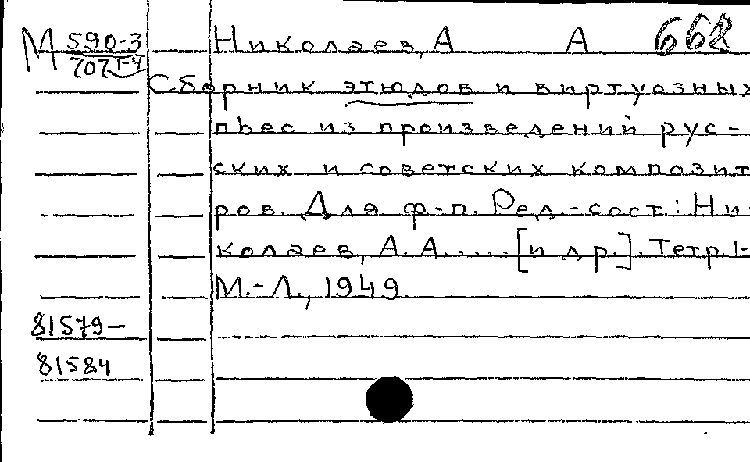 М 590-3 Николаев, А А 668
707 Т-4
Сборник этюдов и виртуозных
пьес из произведений рус-
ских и советских композит
ров. Для ф-п. Ред.-сост.: Ни-
колаев, А. А. .... [и др.]. Тетр. 1-
М.-Л., 1949.
81579-
81584